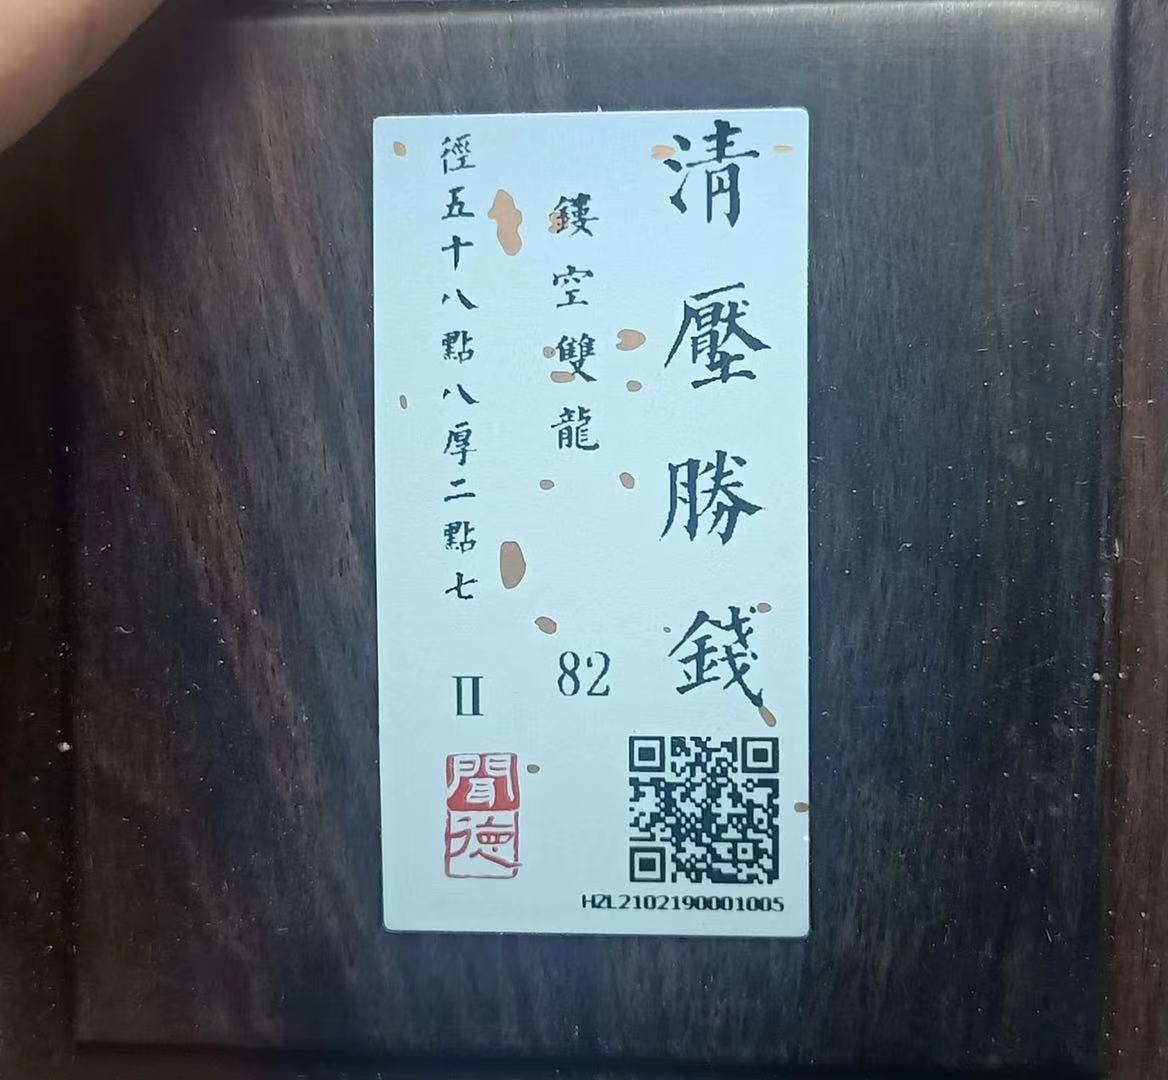 清壓勝錢
鏤空雙龍
82
徑五十八點八厚二點七
II
聞德
HZL2102190001005